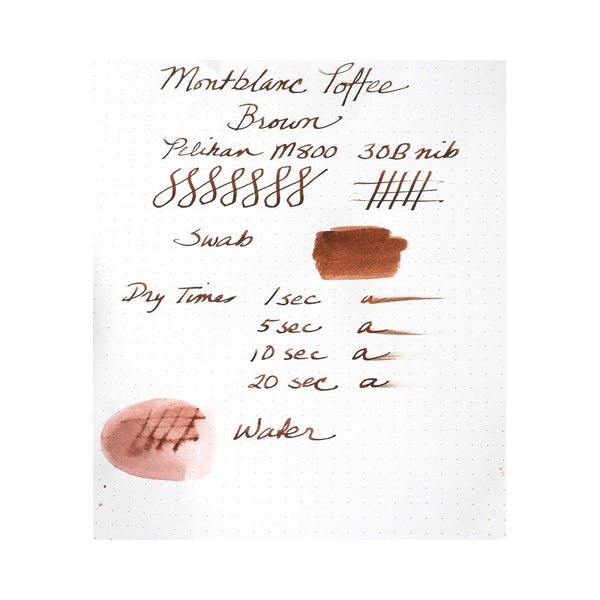 Montblanc Toffee
Brown
Pelikan M800 30B nib
Swab
Dry Times 1 sec a
5 sec a
10 sec a
20 sec a
Water